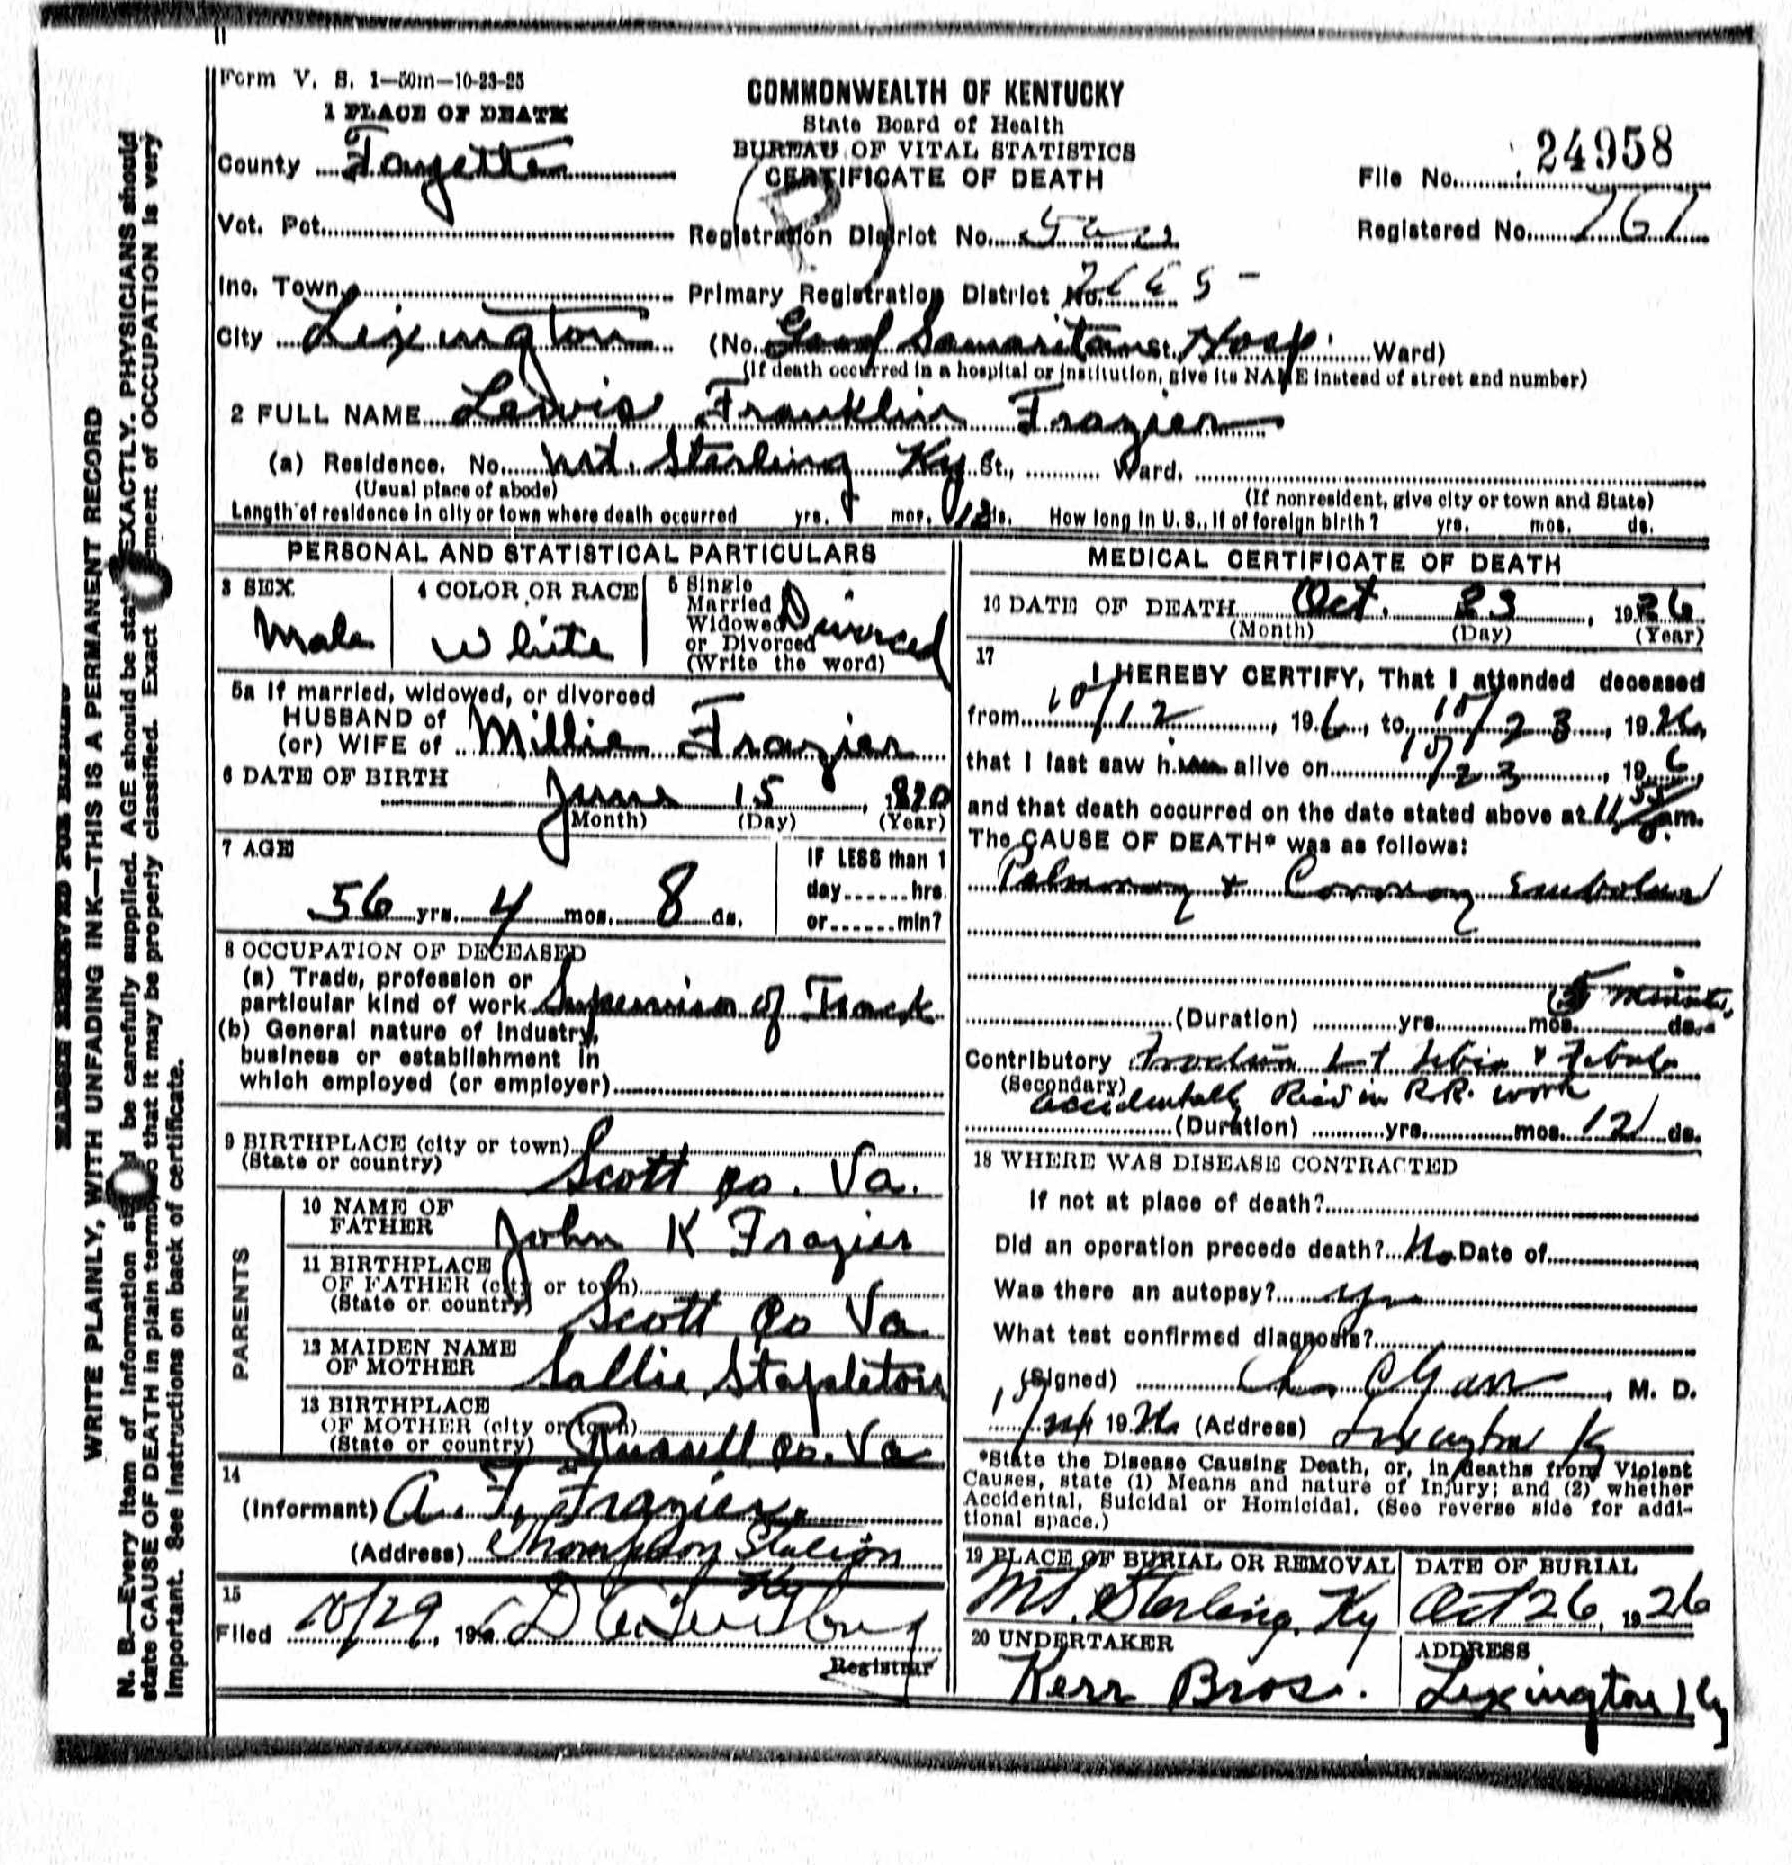 Form V. S. 1—50m—10-23-25
1 PLACE OF DEATH
County Fayette
Vot. Pct.
Inc. Town
City Lexington
COMMONWEALTH OF KENTUCKY
State Board of Health
BUREAU OF VITAL STATISTICS
CERTIFICATE OF DEATH
Registration District No.
Primary Registration District No.
(No. Good Samaritan St. Hosp. Ward)
(If death occurred in a hospital or institution, give its NAME instead of street and number)
File No. 24958
Registered No.
2 FULL NAME Lewis Franklin Frazier
(a) Residence. No. Mt. Sterling Ky St., Ward.
(Usual place of abode) (If nonresident, give city or town and State)
Length of residence in city or town where death occurred yrs. mos. 12 ds. How long in U. S., if of foreign birth? yrs. mos. ds.
PERSONAL AND STATISTICAL PARTICULARS
3 SEX
Male
4 COLOR OR RACE
White
5 Single
Married
Widowed
or Divorced
(Write the word)
Divorced
5a If married, widowed, or divorced
HUSBAND of
(or) WIFE of Millie Frazier
6 DATE OF BIRTH
June 15, 1870
(Month) (Day) (Year)
7 AGE
56 yrs. 4 mos. 8 ds.
IF LESS than 1
day hrs
or min?
8 OCCUPATION OF DECEASED
(a) Trade, profession or
particular kind of work Supervisor of Track
(b) General nature of Industry,
business or establishment in
which employed (or employer)
9 BIRTHPLACE (city or town)
(State or country) Scott co. Va.
PARENTS
10 NAME OF
FATHER John K Frazier
11 BIRTHPLACE
OF FATHER (city or town)
(State or country) Scott co Va
12 MAIDEN NAME
OF MOTHER Sallie Stapleton
13 BIRTHPLACE
OF MOTHER (city or town)
(State or country) Russell co. Va
14
(Informant) A. F. Frazier
(Address) Thompson Station
Ky
15
Filed 10/29, 1926
Registrar
MEDICAL CERTIFICATE OF DEATH
16 DATE OF DEATH Oct. 23, 1926
(Month) (Day) (Year)
17
I HEREBY CERTIFY, That I attended deceased
from 10/12, 196, to 10/23, 1926,
that I last saw him alive on 10/23, 196,
and that death occurred on the date stated above at 11 55 am.
The CAUSE OF DEATH* was as follows:
Pulmonary & Coronary Embolism
(Duration) yrs. mos. 5 minutes ds.
Contributory Fracture Lt tibia & Fibula
(Secondary)
accidentally Rec'd in R.R. work
(Duration) yrs. mos. 12 ds.
18 WHERE WAS DISEASE CONTRACTED
If not at place of death?
Did an operation precede death? No Date of
Was there an autopsy? yes
What test confirmed diagnosis?
(Signed) M. D.
1926 (Address) Lexington Ky
*State the Disease Causing Death, or, in deaths from Violent
Causes, state (1) Means and nature of Injury; and (2) whether
Accidental, Suicidal or Homicidal. (See reverse side for addi-
tional space.)
19 PLACE OF BURIAL OR REMOVAL
Mt. Sterling, Ky
DATE OF BURIAL
Oct 26, 1926
20 UNDERTAKER
Kerr Bros.
ADDRESS
Lexington Ky
MARGIN RESERVED FOR BINDING
WRITE PLAINLY, WITH UNFADING INK—THIS IS A PERMANENT RECORD
N. B.—Every item of information should be carefully supplied. AGE should be stated EXACTLY. PHYSICIANS should
state CAUSE OF DEATH in plain terms, so that it may be properly classified. Exact statement of OCCUPATION is very
important. See instructions on back of certificate.